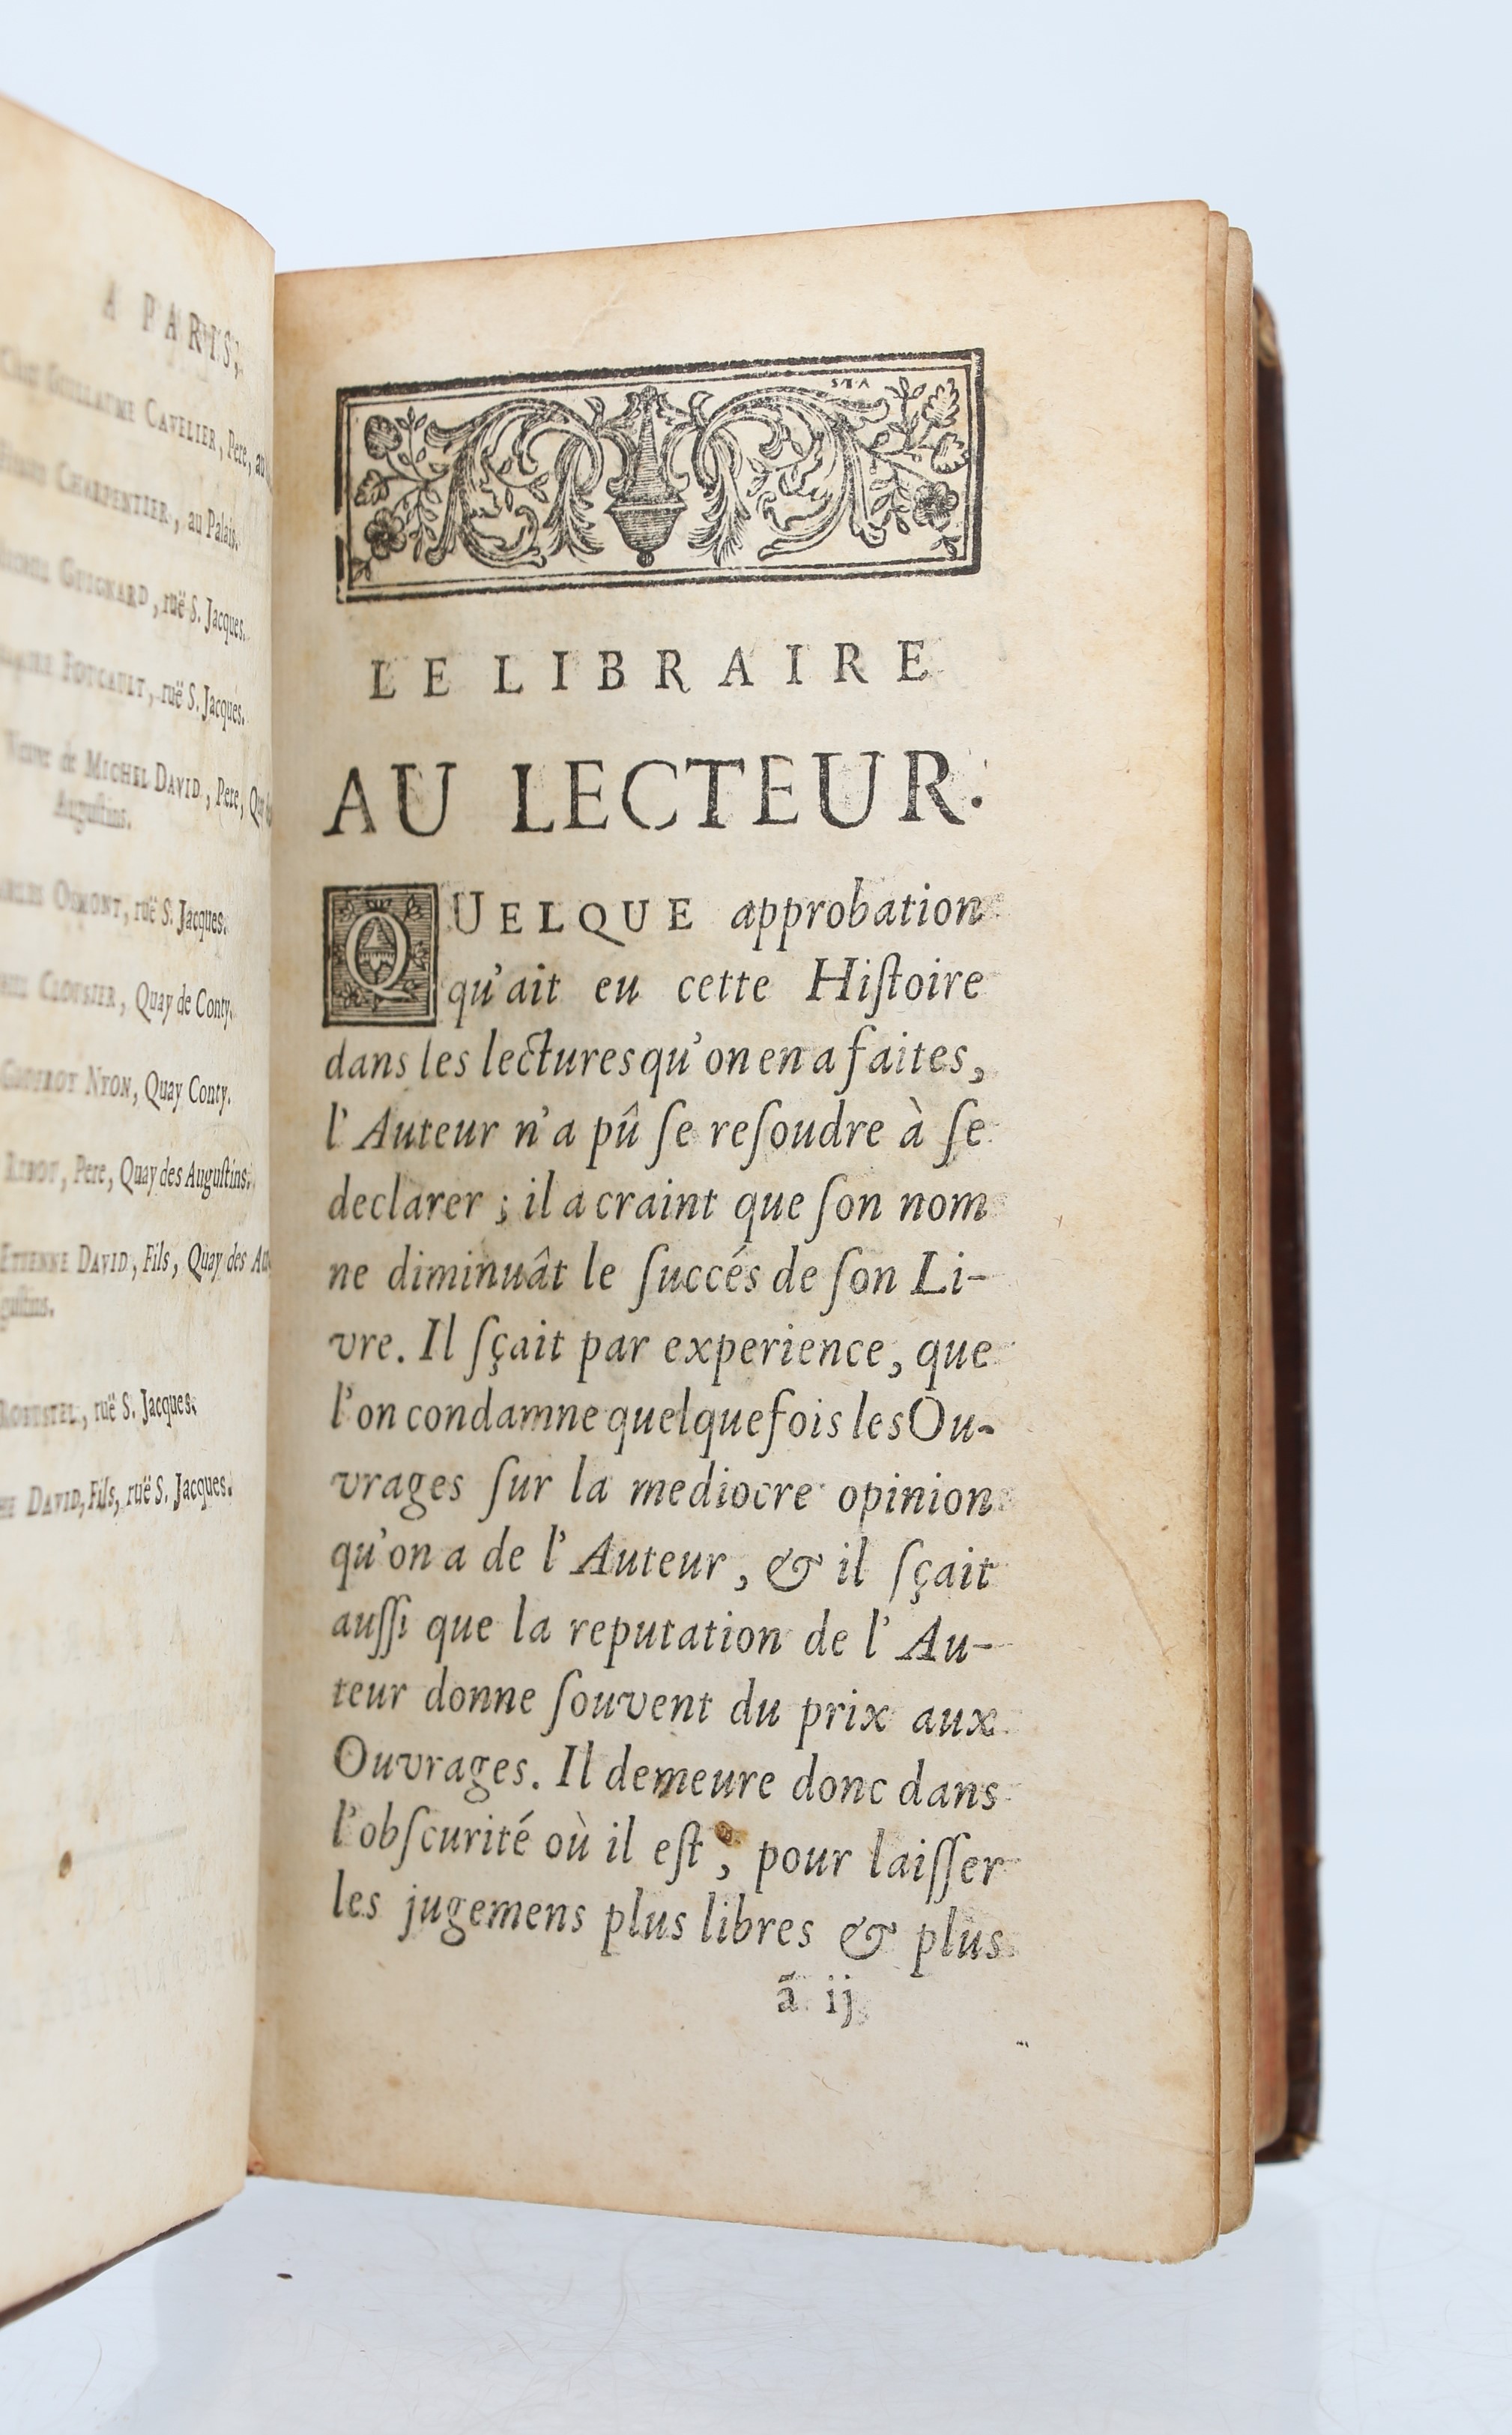 A PARIS,
GUILLAUME CAVELIER, Pere, au
CHARPENTIER, au Palais.
GUIGNARD, ruë S. Jacques.
FOUCAULT, ruë S. Jacques.
Veuve de MICHEL DAVID, Pere, Quay
Auguſtins.
OSMONT, ruë S. Jacques.
CLOUSIER, Quay de Conty.
NYON, Quay Conty.
RIBOU, Pere, Quay des Auguſtins.
ETIENNE DAVID, Fils, Quay des Au-
guſtins.
ROBUSTEL, ruë S. Jacques.
DAVID, Fils, ruë S. Jacques.
LE LIBRAIRE
AU LECTEUR.
QUELQUE approbation
qu'ait eu cette Hiſtoire
dans les lectures qu'on en a faites,
l'Auteur n'a pû ſe reſoudre à ſe
declarer ; il a craint que ſon nom
ne diminuât le ſuccés de ſon Li-
vre. Il ſçait par experience, que
l'on condamne quelquefois les Ou-
vrages ſur la mediocre opinion
qu'on a de l'Auteur, & il ſçait
auſſi que la reputation de l'Au-
teur donne ſouvent du prix aux
Ouvrages. Il demeure donc dans
l'obſcurité où il eſt, pour laiſſer
les jugemens plus libres & plus
ã ij